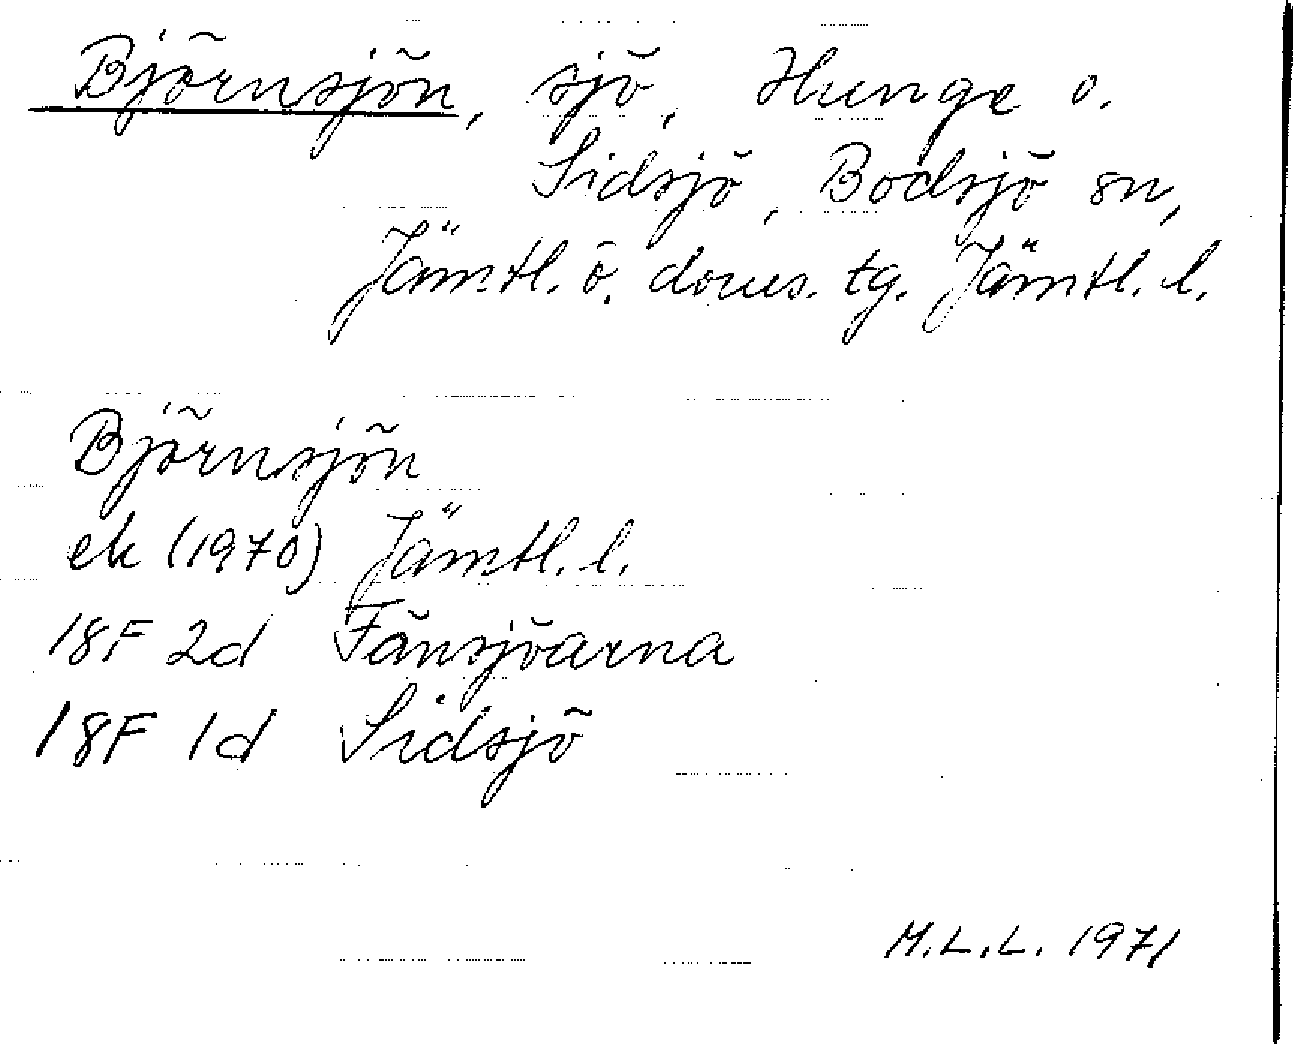 Björnsjön, sjö, Hunge o.
Sidsjö, Bodsjö sn,
Jämtl. ö. doms. tg. Jämtl. l.
Björnsjön
ek (1970) Jämtl. l.
18F 2d Fånsjöarna
18F 1d Sidsjö
M.L.L. 1971